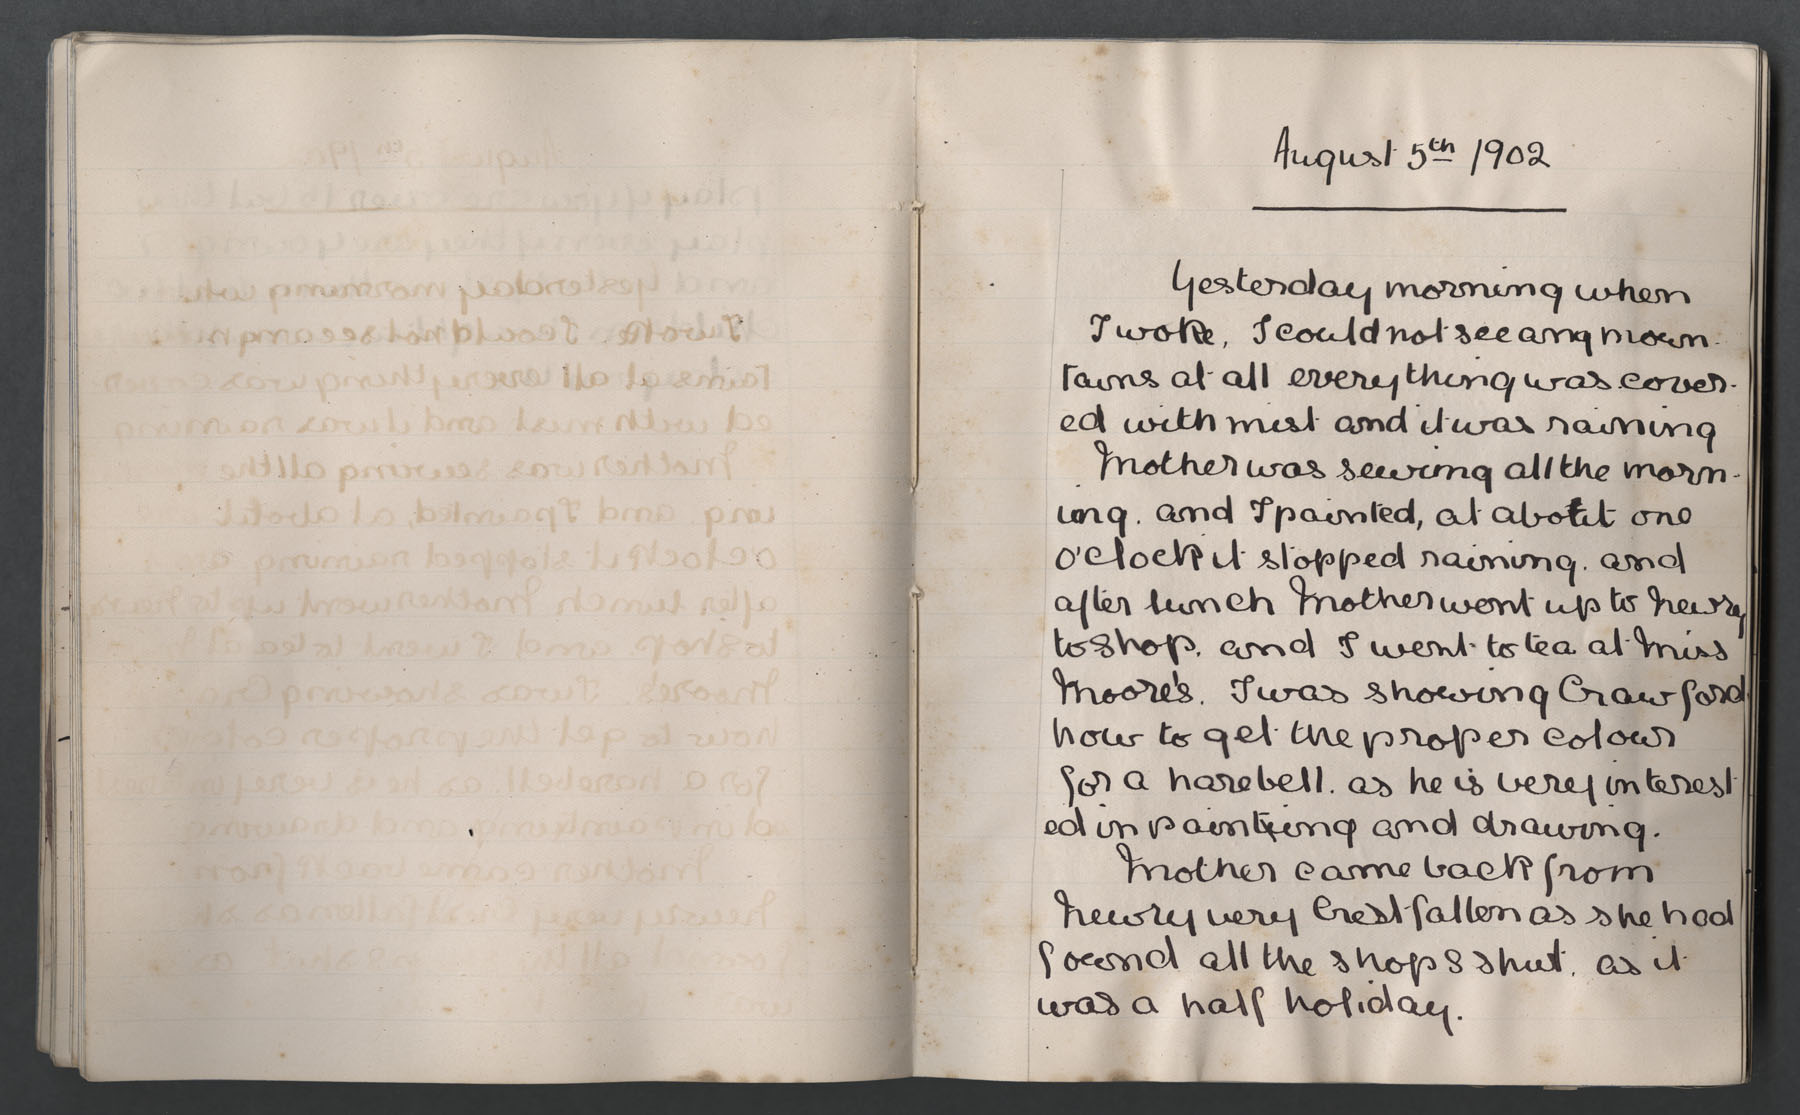 August 5th 1902
Yesterday morning when
I woke, I could not see any moun-
tains at all everything was cover-
ed with mist and it was raining
Mother was sewing all the morn-
ing. and I painted, at about one
o'clock it stopped raining. and
after lunch Mother went up to Newry
to shop. and I went to tea at Miss
Moore's. I was showing Crawford
how to get the proper colour
for a harebell. as he is very interest
ed in painting and drawing.
Mother came back from
Newry very Crestfallen as she had
found all the shops shut. as it
was a half holiday.